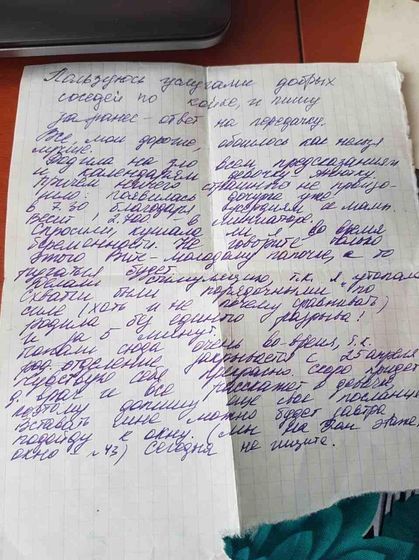 Пользуюсь услугами добрых
соседей по койке, и пишу
заранее - ответ на передачку.
Все мои дорогие, обошлось как нельзя
лучше.
Родила на зло всем предсказаниям
и календарям девочку
Причем ничего страшного не
ним. появилась уже
в 30 благодаря мамы
Весит 2.700 в миниатюре,
Спросили, кушала ли я во время
беременности. Не говорите только
этого Вите - молодому папочке, а то
ругаться будет.
Делали стимуляцию, т.к. я
Схватки были порядочными по
силе (хоть и не с чем сравнивать)
родила без единого разрыва!
и за 5 минут.
Попали сюда очень во-время, т.к.
род. отделение закрывается с 25 апреля
Чувствую себя прекрасно. Скоро придет
д. врач и все расскажет о девочке,
поэтому допишу еще свое послание.
Вставать мне можно будет завтра
подойду к окну. (мы на этаже,
окно №43) Сегодня не ищите.